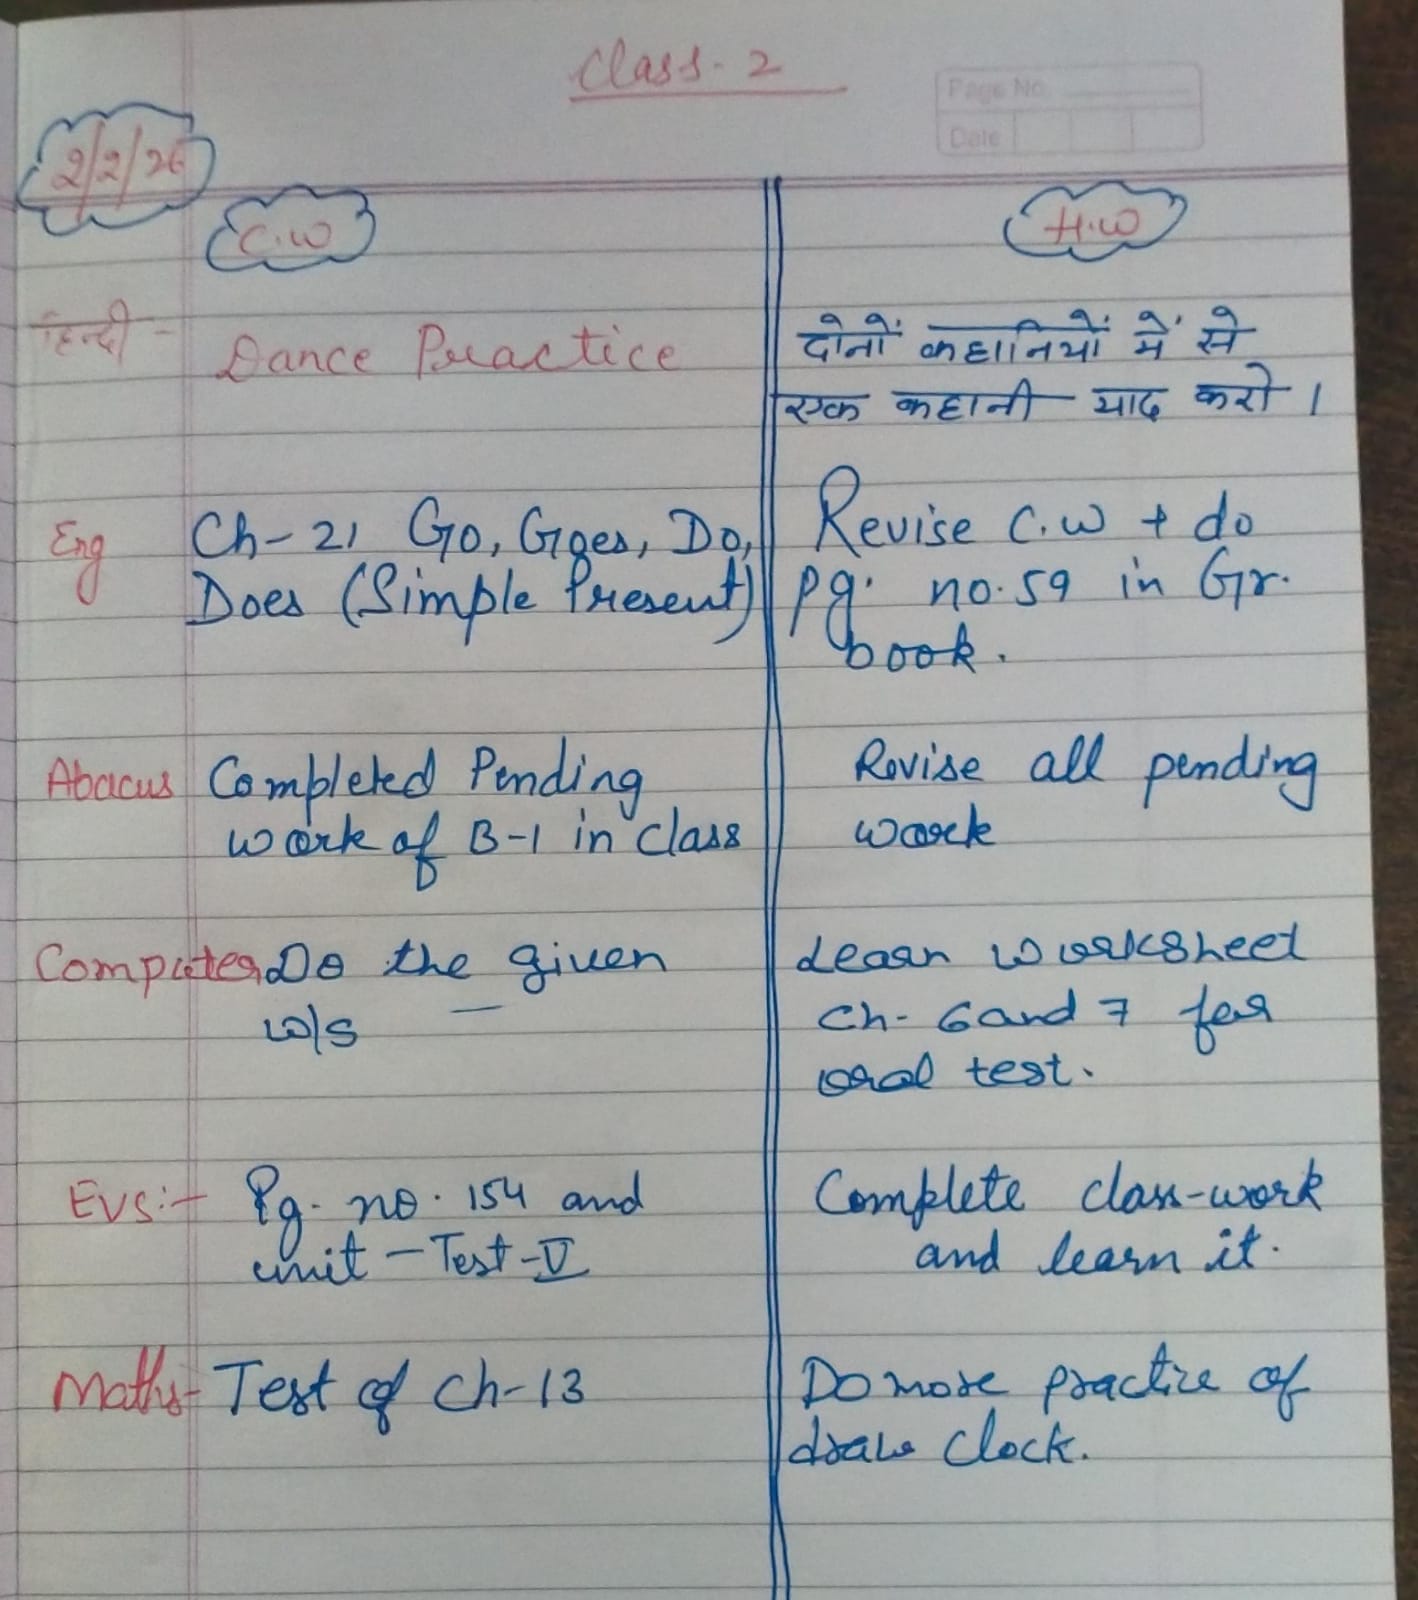 Class-2
Page No.
Date
2/2/26
C.W
H.W
हिन्दी - Dance Practice
दोनों कहानियों में से
एक कहानी याद करो ।
Eng Ch-21 Go, Goes, Do,
Does (Simple Present)
Revise C.W + do
pg. no. 59 in Gr.
book.
Abacus Completed Pending
work of B-1 in class
Revise all pending
work
Computer Do the given
w/s
Learn worksheet
Ch- 6 and 7 for
oral test.
EVS:- Pg. no. 154 and
unit - Test - V
Complete class-work
and learn it.
Maths- Test of Ch-13
Do more practice of
draw clock.